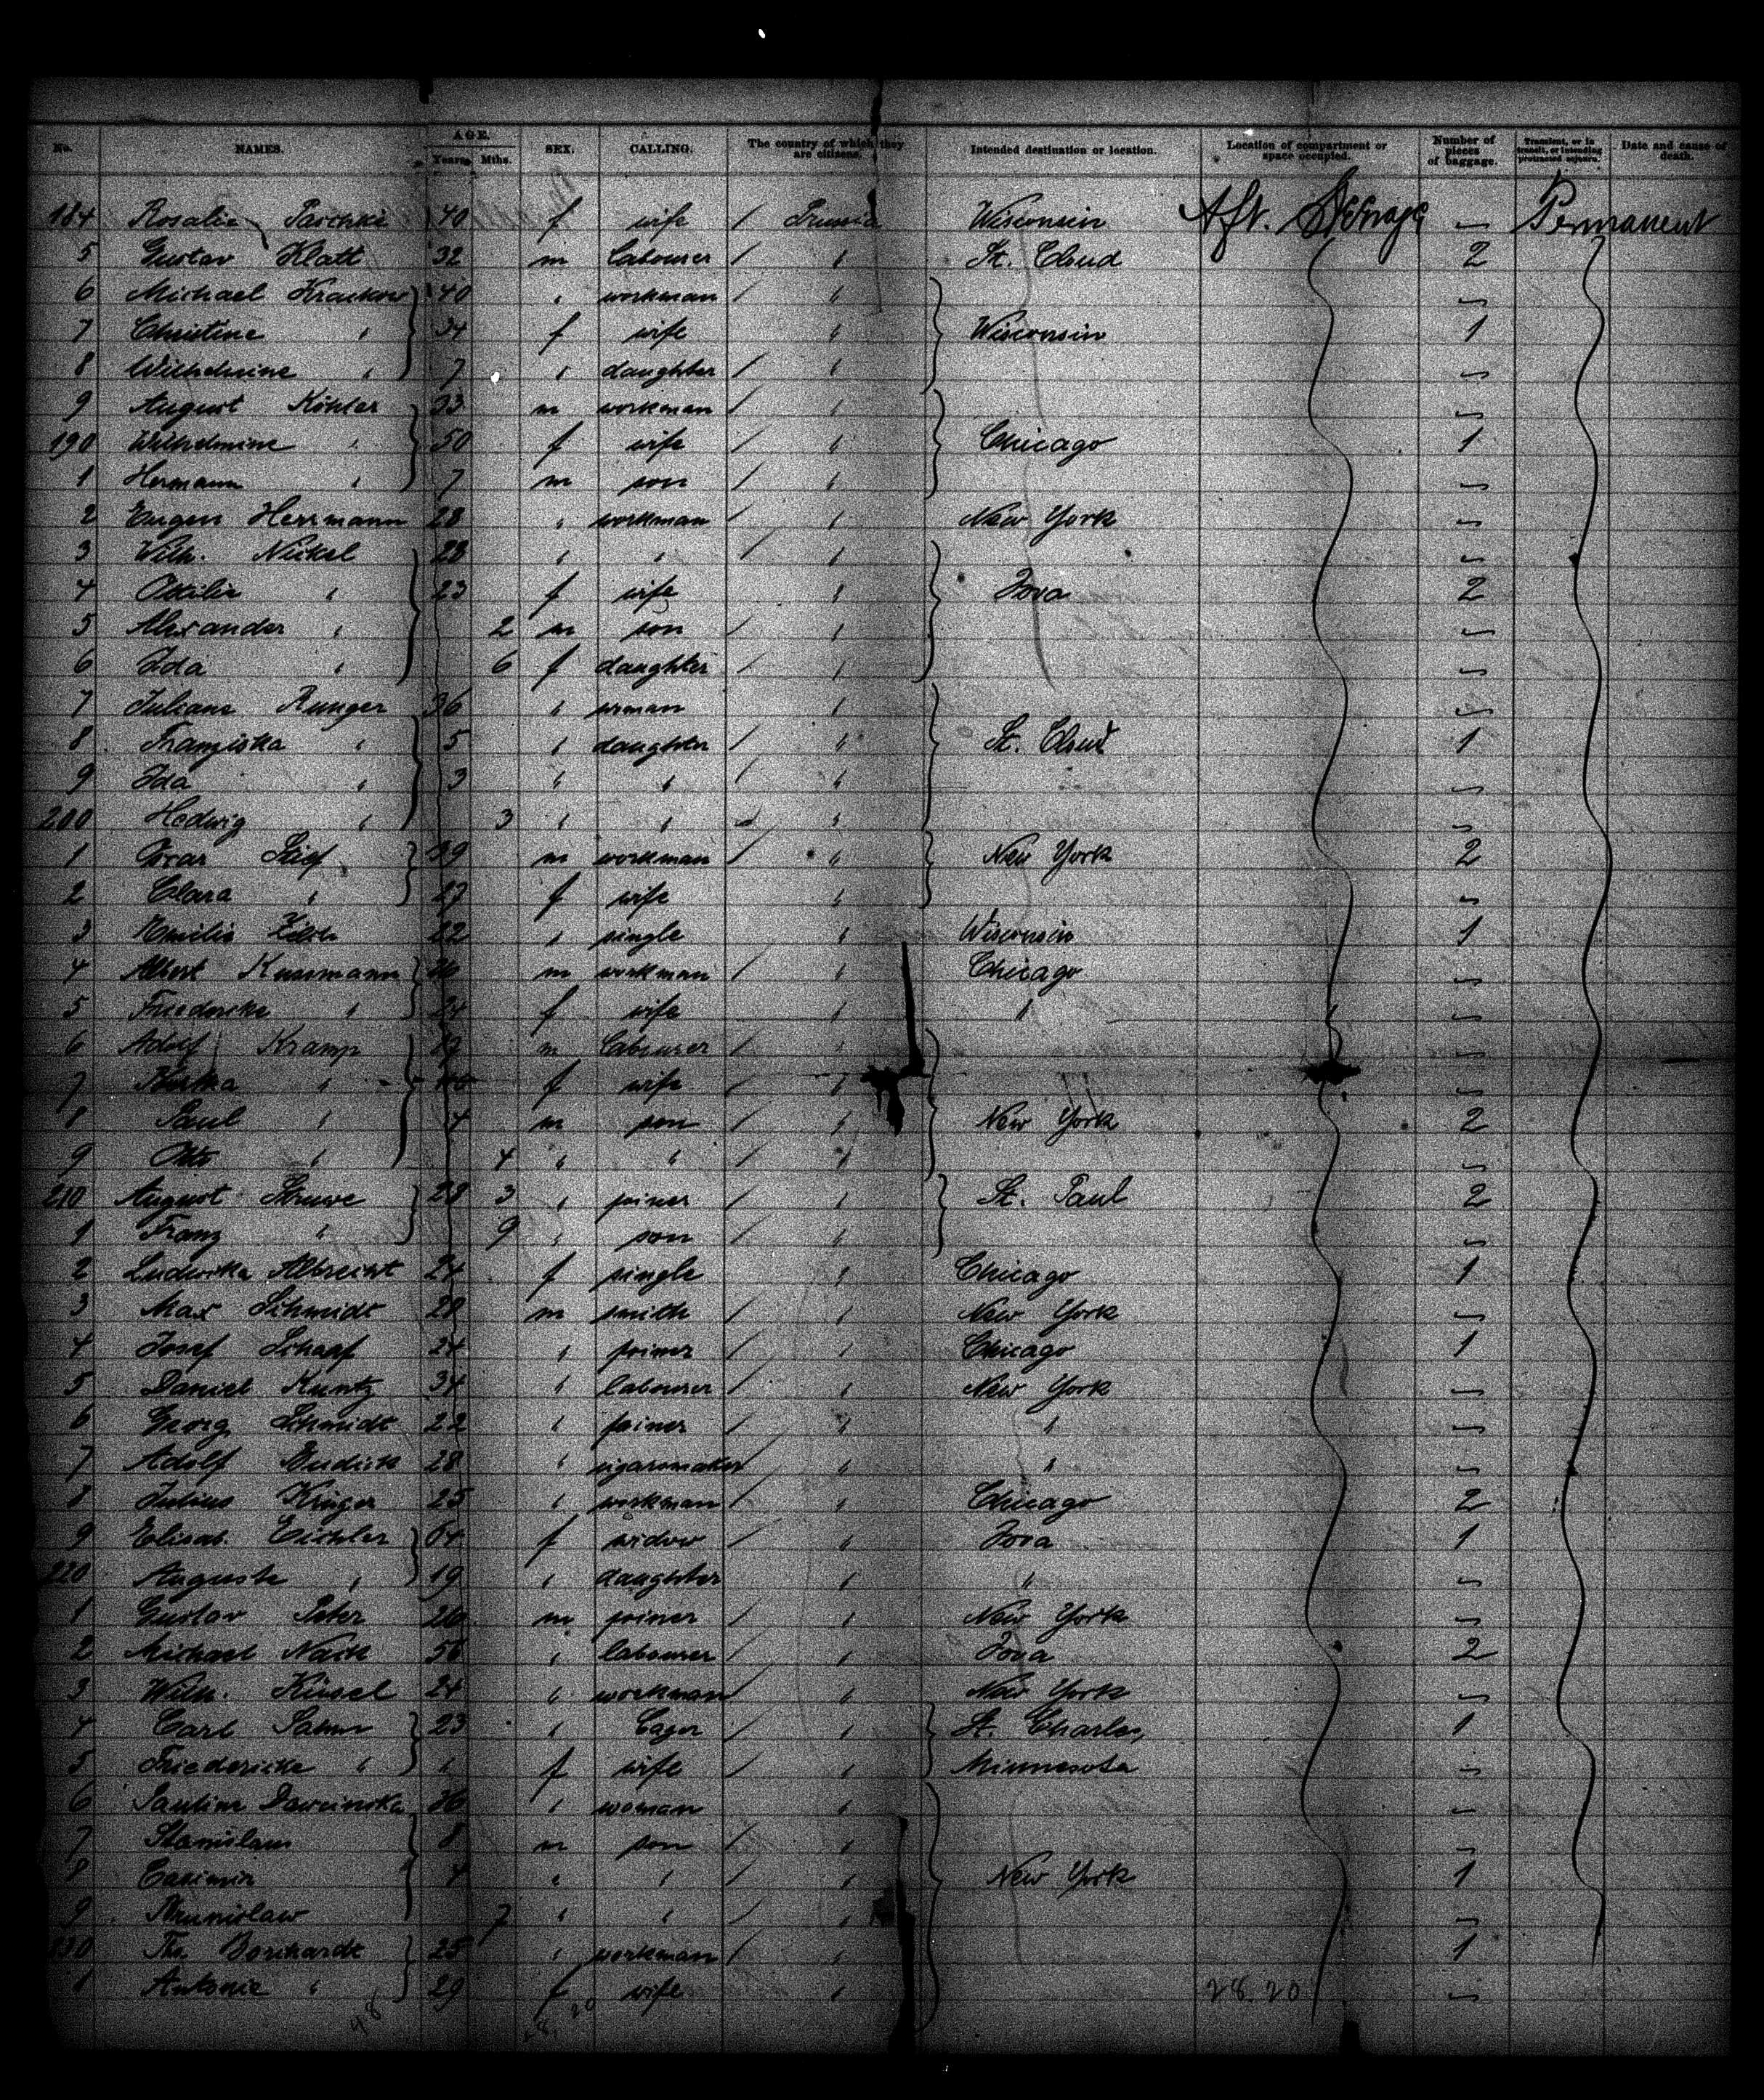 No. NAMES. AGE. Years. Mths. SEX. CALLING. The country of which they are citizens. Intended destination or location. Location of compartment or space occupied. Number of pieces of baggage. Transient, or in transit, or intending protracted sojourn. Date and cause of death.
184 Rosalie Paschke 40 f wife / Prussia Wisconsin Aft. Steerage — Permanent
5 Gustav Klatt 32 m labourer / " St. Cloud 2
6 Michael Krackow 40 " workman / " —
7 Christine " 34 f wife " Wisconsin 1
8 Wilhelmine " 7 " daughter / " —
9 August Köhler 33 m workman / " —
190 Wilhelmine " 50 f wife " Chicago 1
1 Hermann " 7 m son / " —
2 Eugen Herrmann 28 " workman / " New York —
3 Wilh. Nickel 28 " " / " —
4 Ottilie " 23 f wife " Iova 2
5 Alexander " 2 m son / " —
6 Ida " 6 f daughter / " —
7 Juliane Runger 36 " woman " —
8 Franziska " 5 " daughter / " St. Cloud 1
9 Ida " 3 " " / " —
200 Hedwig " 3 " " " —
1 39 m workman / " New York 2
2 Clara " 27 f wife " —
3 Emilie 22 " single " Wisconsin 1
4 Albert Kussmann 26 m workman / " Chicago —
5 Friedericke " 24 f wife " " —
6 Adolf Kramp 37 m labourer / " —
7 " f wife / " —
8 Paul " 4 m son / " New York 2
9 Otto " 4 " " / " —
210 August Struwe 28 3 " joiner / " St. Paul 2
1 Franz " 9 " son / " —
2 Ludwika Albrecht 24 f single " Chicago 1
3 Max Schmidt 28 m smith / " New York —
4 Josef Schaaf 24 " joiner / " Chicago 1
5 Daniel Kuntz 34 " labourer / " New York —
6 Georg Schmidt 22 " joiner / " " —
7 Adolf 28 " sigarsmaker / " " —
8 Julius Krüger 25 " workman / " Chicago 2
9 Elisab. Eichler 64 f widow / " Iova 1
220 Auguste " 19 " daughter " " —
1 Gustav Peter 26 m joiner / " New York —
2 Michael 56 " labourer / " Iova 2
3 Wilh. Kiesel 24 " workman / " New York —
4 Carl 23 " / " St. Charles, 1
5 Friedericke " " f wife / " Minnesota —
6 Pauline 36 " woman " —
7 Stanislaus 8 m son / " —
8 Casimir 4 " " / " New York 1
9 7 " " / " —
230 Borchardt 25 " workman / " 1
1 Antonie " 29 f wife " —
48 28. 20 28. 20